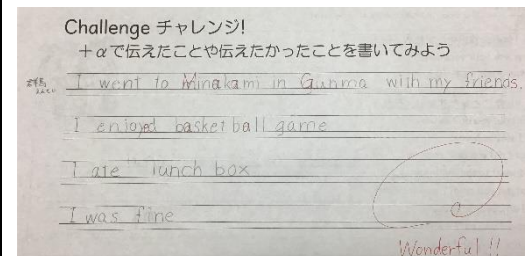 Challenge チャレンジ!
+αで伝えたことや伝えたかったことを書いてみよう
I went to Minakami in Gunma with my friends.
I enjoyed basket ball game
I ate lunch box
I was fine
Wonderful !!